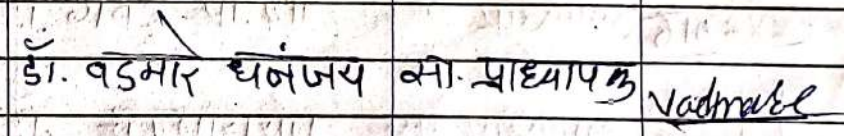 डॉ. वडमारे धनंजय सो. प्राध्यापक Vadmare